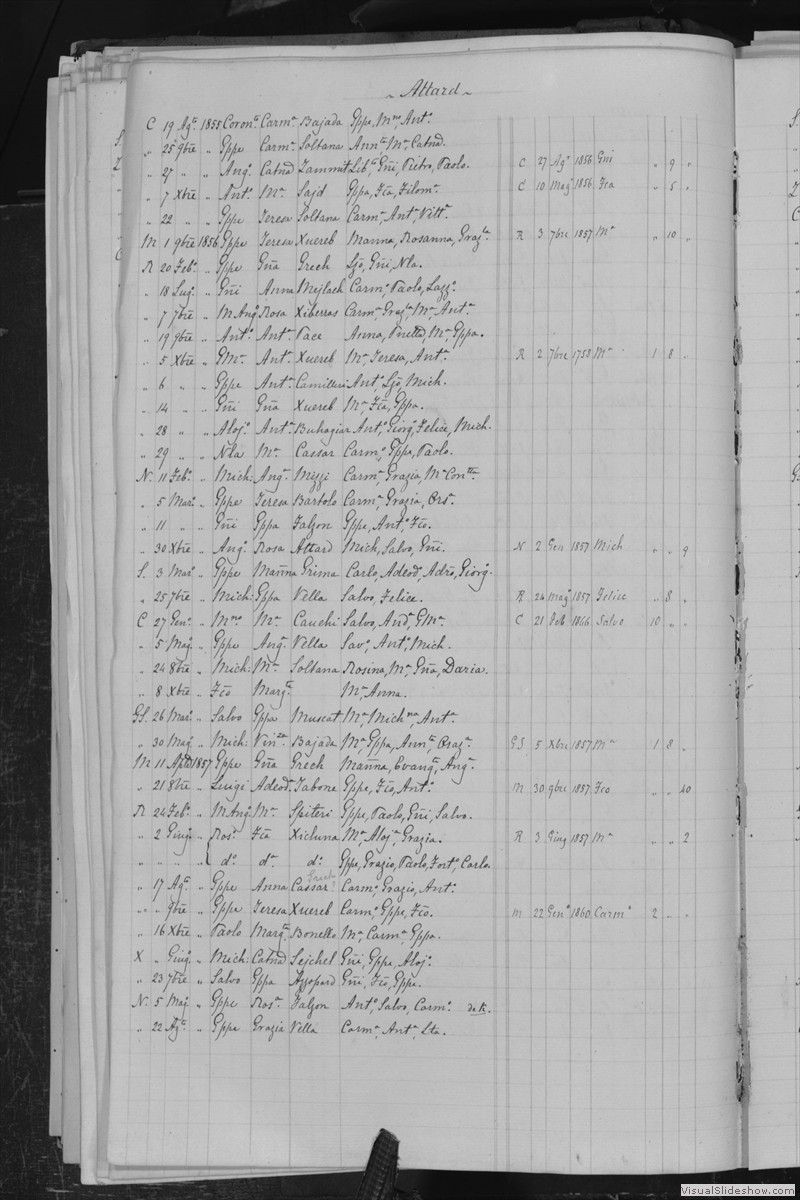 ~ Attard ~
C 19 Agᵒ. 1855 Coronᵗᵃ. Carmᵃ. Bajada Gppe, Mᵐᵒ, Antᵒ.
„ 25 9bre „ Gppe Carmᵃ. Soltana Annᵗᵃ Mᵃ, Catnd.
„ 27 „ „ Angᵒ. Catnd Zammut Libᵗᵃ Gñi, Pietro, Paolo. C 27 Agᵒ 1856 Gñi „ 9 „
„ 7 Xbre „ Antᵒ. Mᵃ. Sajd Gppa, Fca, Filomᵃ. C 10 Magᵒ 1856 Fca „ 5 „
„ 22 „ „ Gppe Teresa Soltana Carmᵃ, Antᵃ Vittᵃ.
M 1 9bre 1856 Gppe Teresa Xuereb Marina, Rosanna, Grazᵃ. R 3 7bre 1857 Mᵃ „ 10 „
R 20 Febᵒ. „ Gppe Gña Grech Ljo, Gñi, Nla.
„ 18 Lugᵒ. „ Gñi Anna Mejlach Carmᵒ, Paolo, Lazzᵒ.
„ 7 7bre „ M Angᵒ Rosa Xiberras Carmᵃ Grazᵃ, Mᵃ, Antᵃ.
„ 19 9bre „ Antᵒ. Antᵃ. Pace Anna, Mᵃ, Gppa.
„ 5 Xbre „ GMᵃ. Antᵃ. Xuereb Mᵃ, Teresa, Antᵃ. R 2 7bre 1758 Mᵃ 1 8 „
„ 6 „ „ Gppe Antᵃ. Camilleri Antᵒ, Ljo, Mich.
„ 14 „ „ Gñi Gña Xuereb Mᵃ, Fca, Gppa.
„ 28 „ „ Alojᵒ. Antᵃ. Buhagiar Antᵒ, Giorgᵒ, Felice, Mich.
„ 29 „ „ Nla Mᵃ. Cassar Carmᵒ, Gppe, Paolo.
N. 11 Febᵒ. „ Mich: Angᵃ. Mizzi Carmᵃ, Grazia, Mᵃ Conᵗᵗᵃ.
„ 5 Marᵒ. „ Gppe Teresa Bartolo Carmᵃ, Grazia, Orsᵃ.
„ 11 „ „ Gñi Gppa Falzon Gppe, Antᵒ, Fco.
„ 30 Xbre „ Angᵒ. Rosa Attard Mich, Salvo, Gñi. N 2 Gen 1857 Mich „ „ 9
S. 3 Marᵒ. „ Gppe Marina Grima Carlo, Adeodᵒ, Adro, Giorgᵒ.
„ 25 7bre „ Mich: Gppa Vella Salvo, Felice. R 24 Magᵒ 1857 Felice „ 8 „
C 27 Genᵒ. „ Mᵐᵒ Mᵃ. Cauchi Salvo, Andᵃ, GMᵃ. C 21 Feb 1866 Salvo 10 „ „
„ 5 Magᵒ. „ Gppe Angᵃ. Vella Savᵒ, Antᵒ, Mich.
„ 24 8bre „ Mich: Mᵃ. Soltana Rosina, Mᵃ, Gña, Daria.
„ 8 Xbre „ Fco Margᵗᵃ. Mᵃ, Anna.
GS. 26 Marᵒ. „ Salvo Gppa Muscat Mᵃ, Michⁿᵃ, Antᵃ.
„ 30 Magᵒ. „ Mich: Vinᶻᵃ. Bajada Mᵃ, Gppa, Annᵗᵃ, Grazᵃ. GS 5 Xbre 1857 Mᵃ 1 8 „
M 11 Aple 1857 Gppe Gña Grech Marina, Evangᵃ, Angᵃ.
„ 21 8bre „ Luigi Adeodᵃ. Tabone Gppe, Fco, Antᵒ. M 30 9bre 1857 Fco „ „ 40
R 24 Febᵒ. „ M Angᵒ Mᵃ. Spiteri Gppe, Paolo, Gñi, Salvo.
„ 2 Giugᵒ. „ Rosᵒ. Fca Xicluna Mᵃ, Alojᵃ, Grazia. R 3 Giug 1857 Mᵃ „ „ 2
„ „ „ „ dᵒ. dᵃ. dᵒ. Gppe, Grazio, Paolo, Fortᵒ, Carlo.
„ 17 Agᵒ. „ Gppe Anna Cassar Carmᵒ, Grazio, Antᵒ.
„ „ 9bre „ Gppe Teresa Xuereb Carmᵒ, Gppe, Fco. M 22 Genᵒ 1860 Carmᵒ 2 „ „
„ 16 Xbre „ Paolo Margᵗᵃ. Bonello Mᵃ, Carmᵃ, Gppa.
X „ Giugᵒ. „ Mich: Catnd Sejchel Gñi, Gppe, Alojᵒ.
„ 23 7bre „ Salvo Gppa Azzopard Gñi, Fco, Gppe.
N. 5 Magᵒ „ Gppe Rosᵃ. Falzon Antᵒ, Salvo, Carmᵒ.
„ 22 Agᵒ. „ Gppe Grazia Vella Carmᵃ, Antᵃ, Lta.
VisualSlideshow.com